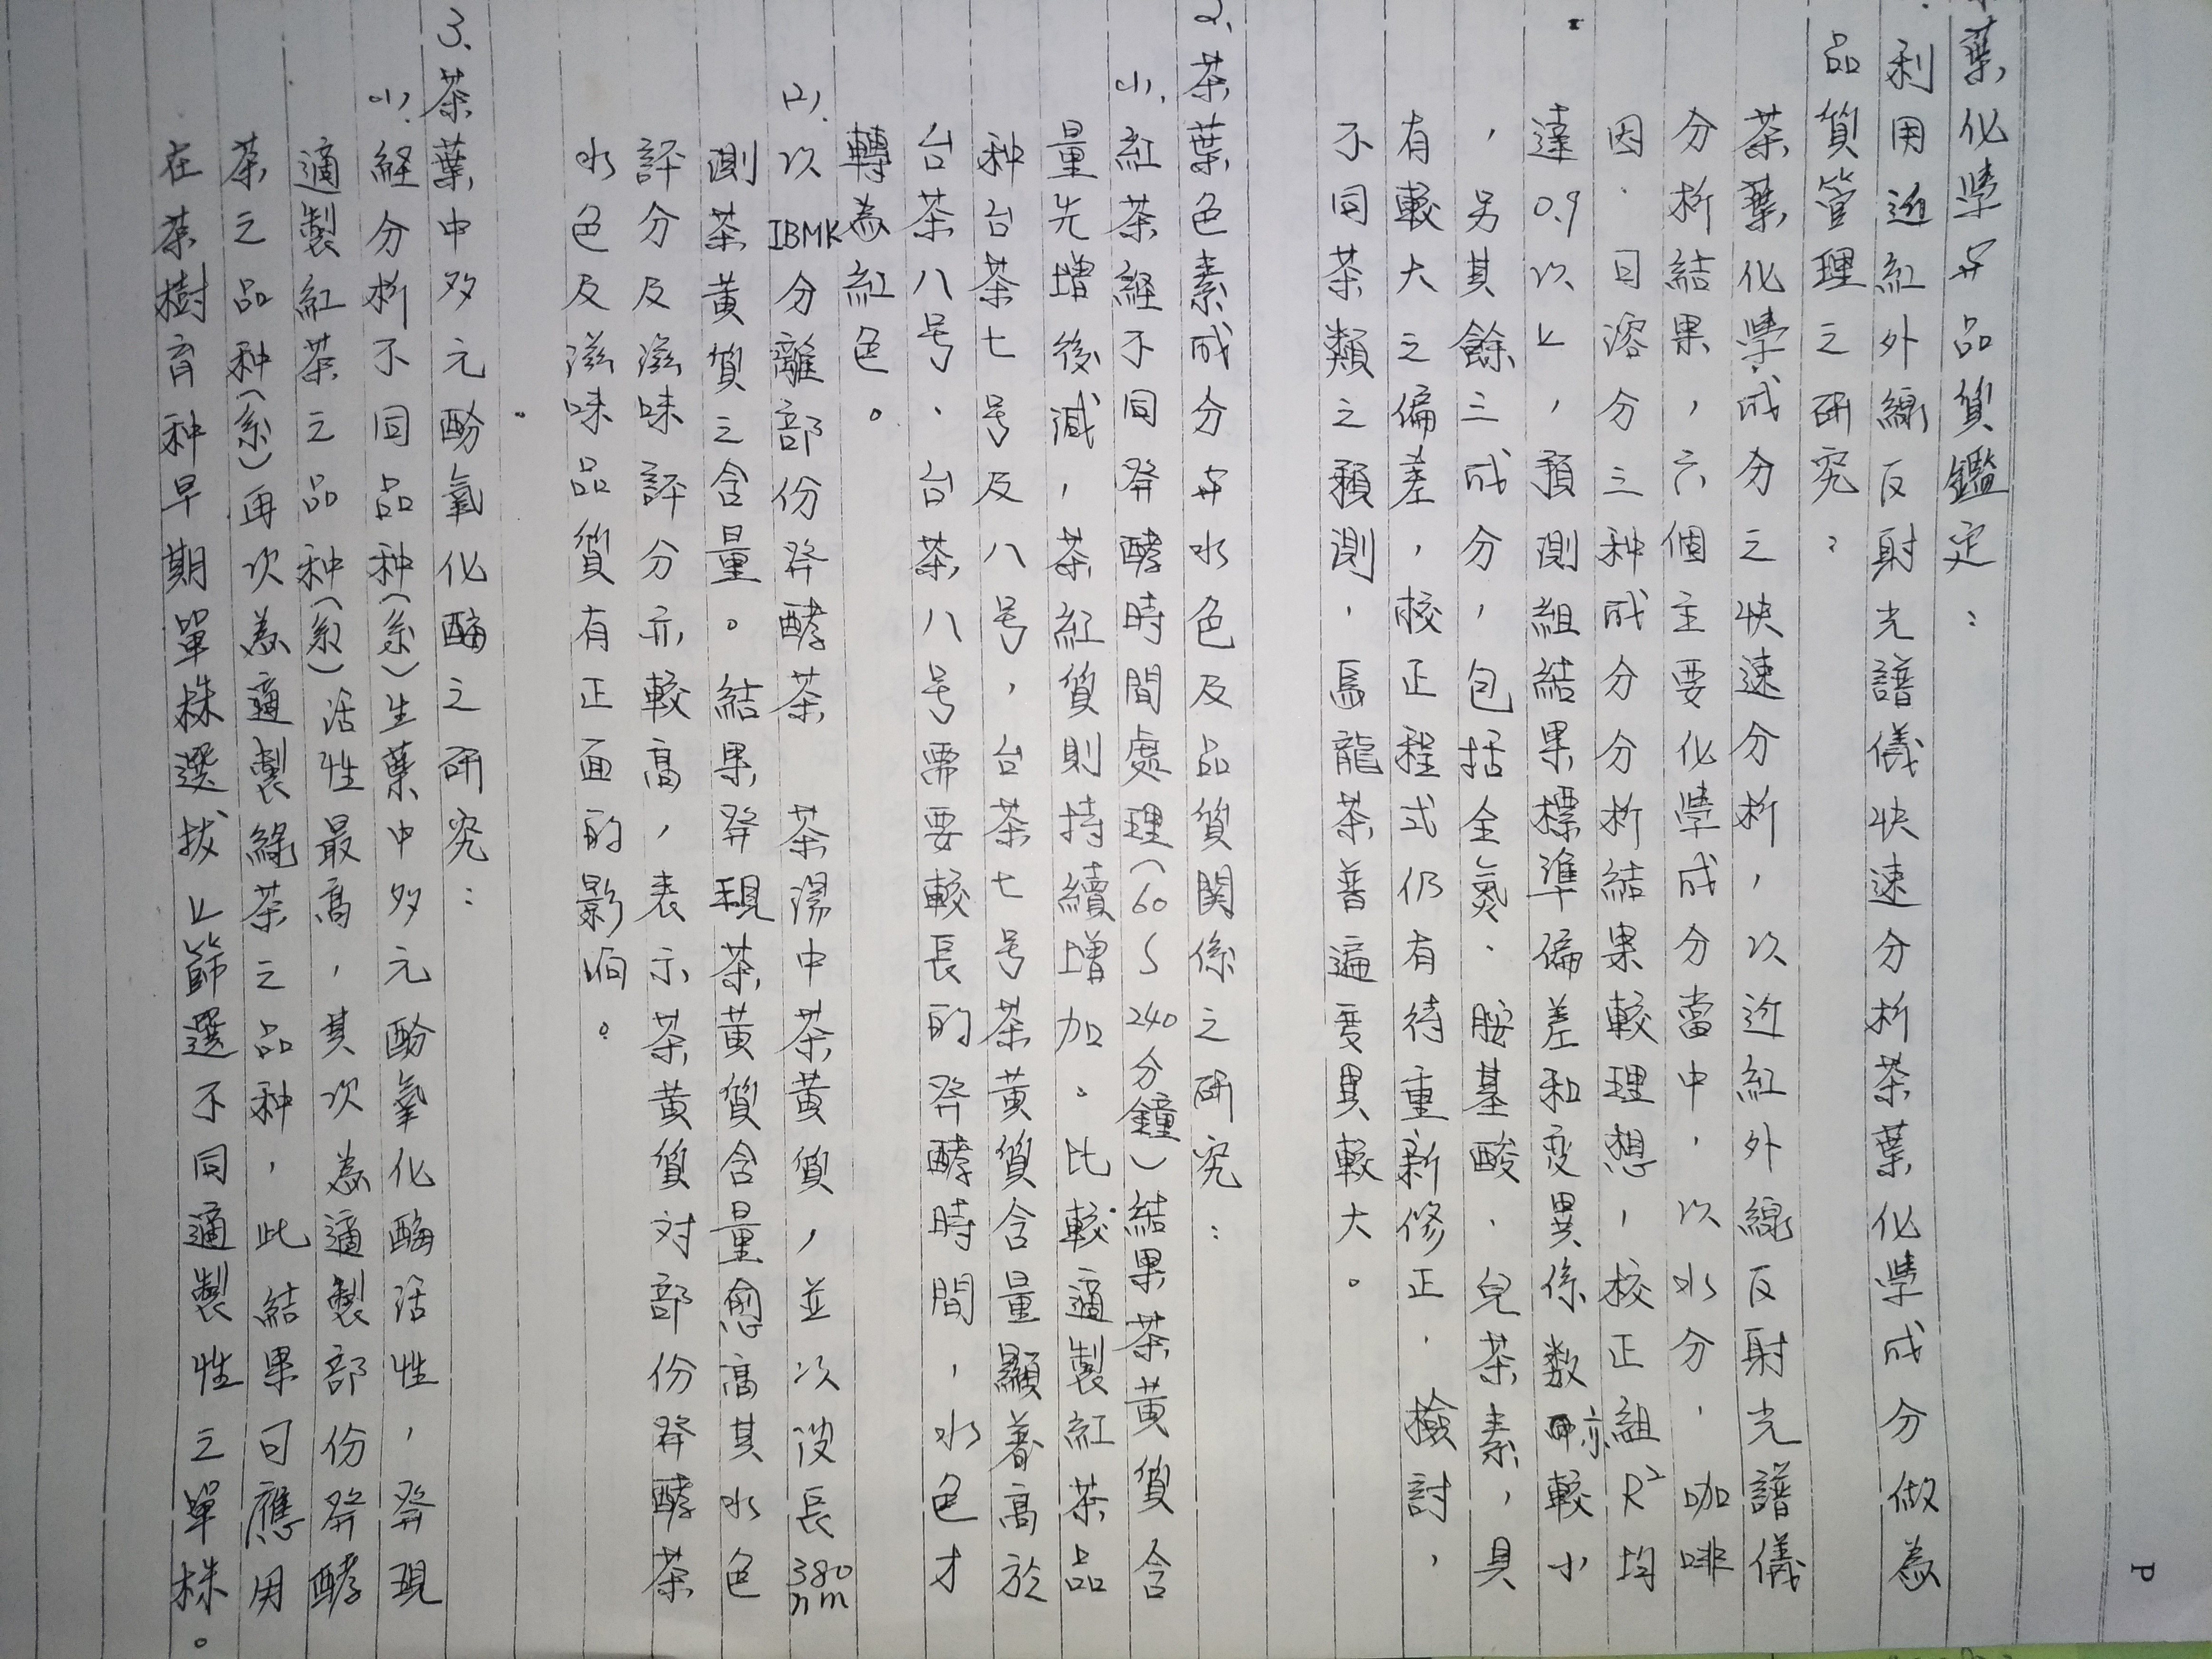 葉化學与品質鑑定：
利用近紅外線反射光譜儀快速分析茶葉化學成分做為
品質管理之研究：
茶葉化學成分之快速分析，以近紅外線反射光譜儀
分析結果，六個主要化學成分當中，以水分、咖啡
因、可溶分三种成分分析結果較理想，校正組R²均
達0.9以上，預測組結果標準偏差和变異係数亦較小
，另其餘三成分，包括全氮、胺基酸、兒茶素，具
有較大之偏差，校正程式仍有待重新修正、檢討，
不同茶類之預測，烏龍茶普遍变異較大。
2.茶葉色素成分与水色及品質関係之研究：
(1).紅茶経不同発酵時間處理(60~240分鐘)結果茶黃質含
量先增後減，茶紅質則持續增加。比較適製紅茶品
种台茶七号及八号，台茶七号茶黃質含量顯著高於
台茶八号，台茶八号需要較長的発酵時間，水色才
轉為紅色。
(2).以IBMK分離部份発酵茶 茶湯中茶黃質，並以波長380nm
測茶黃質之含量。結果発現茶黃質含量愈高其水色
評分及滋味評分亦較高，表示茶黃質対部份発酵茶
水色及滋味品質有正面的影响。
3.茶葉中多元酚氧化酶之研究：
(1).経分析不同品种(系)生葉中多元酚氧化酶活性，発現
適製紅茶之品种(系)活性最高，其次為適製部份発酵
茶之品种(系)再次為適製綠茶之品种，此結果可應用
在茶樹育种早期單株選拔上篩選不同適製性之單株。
P